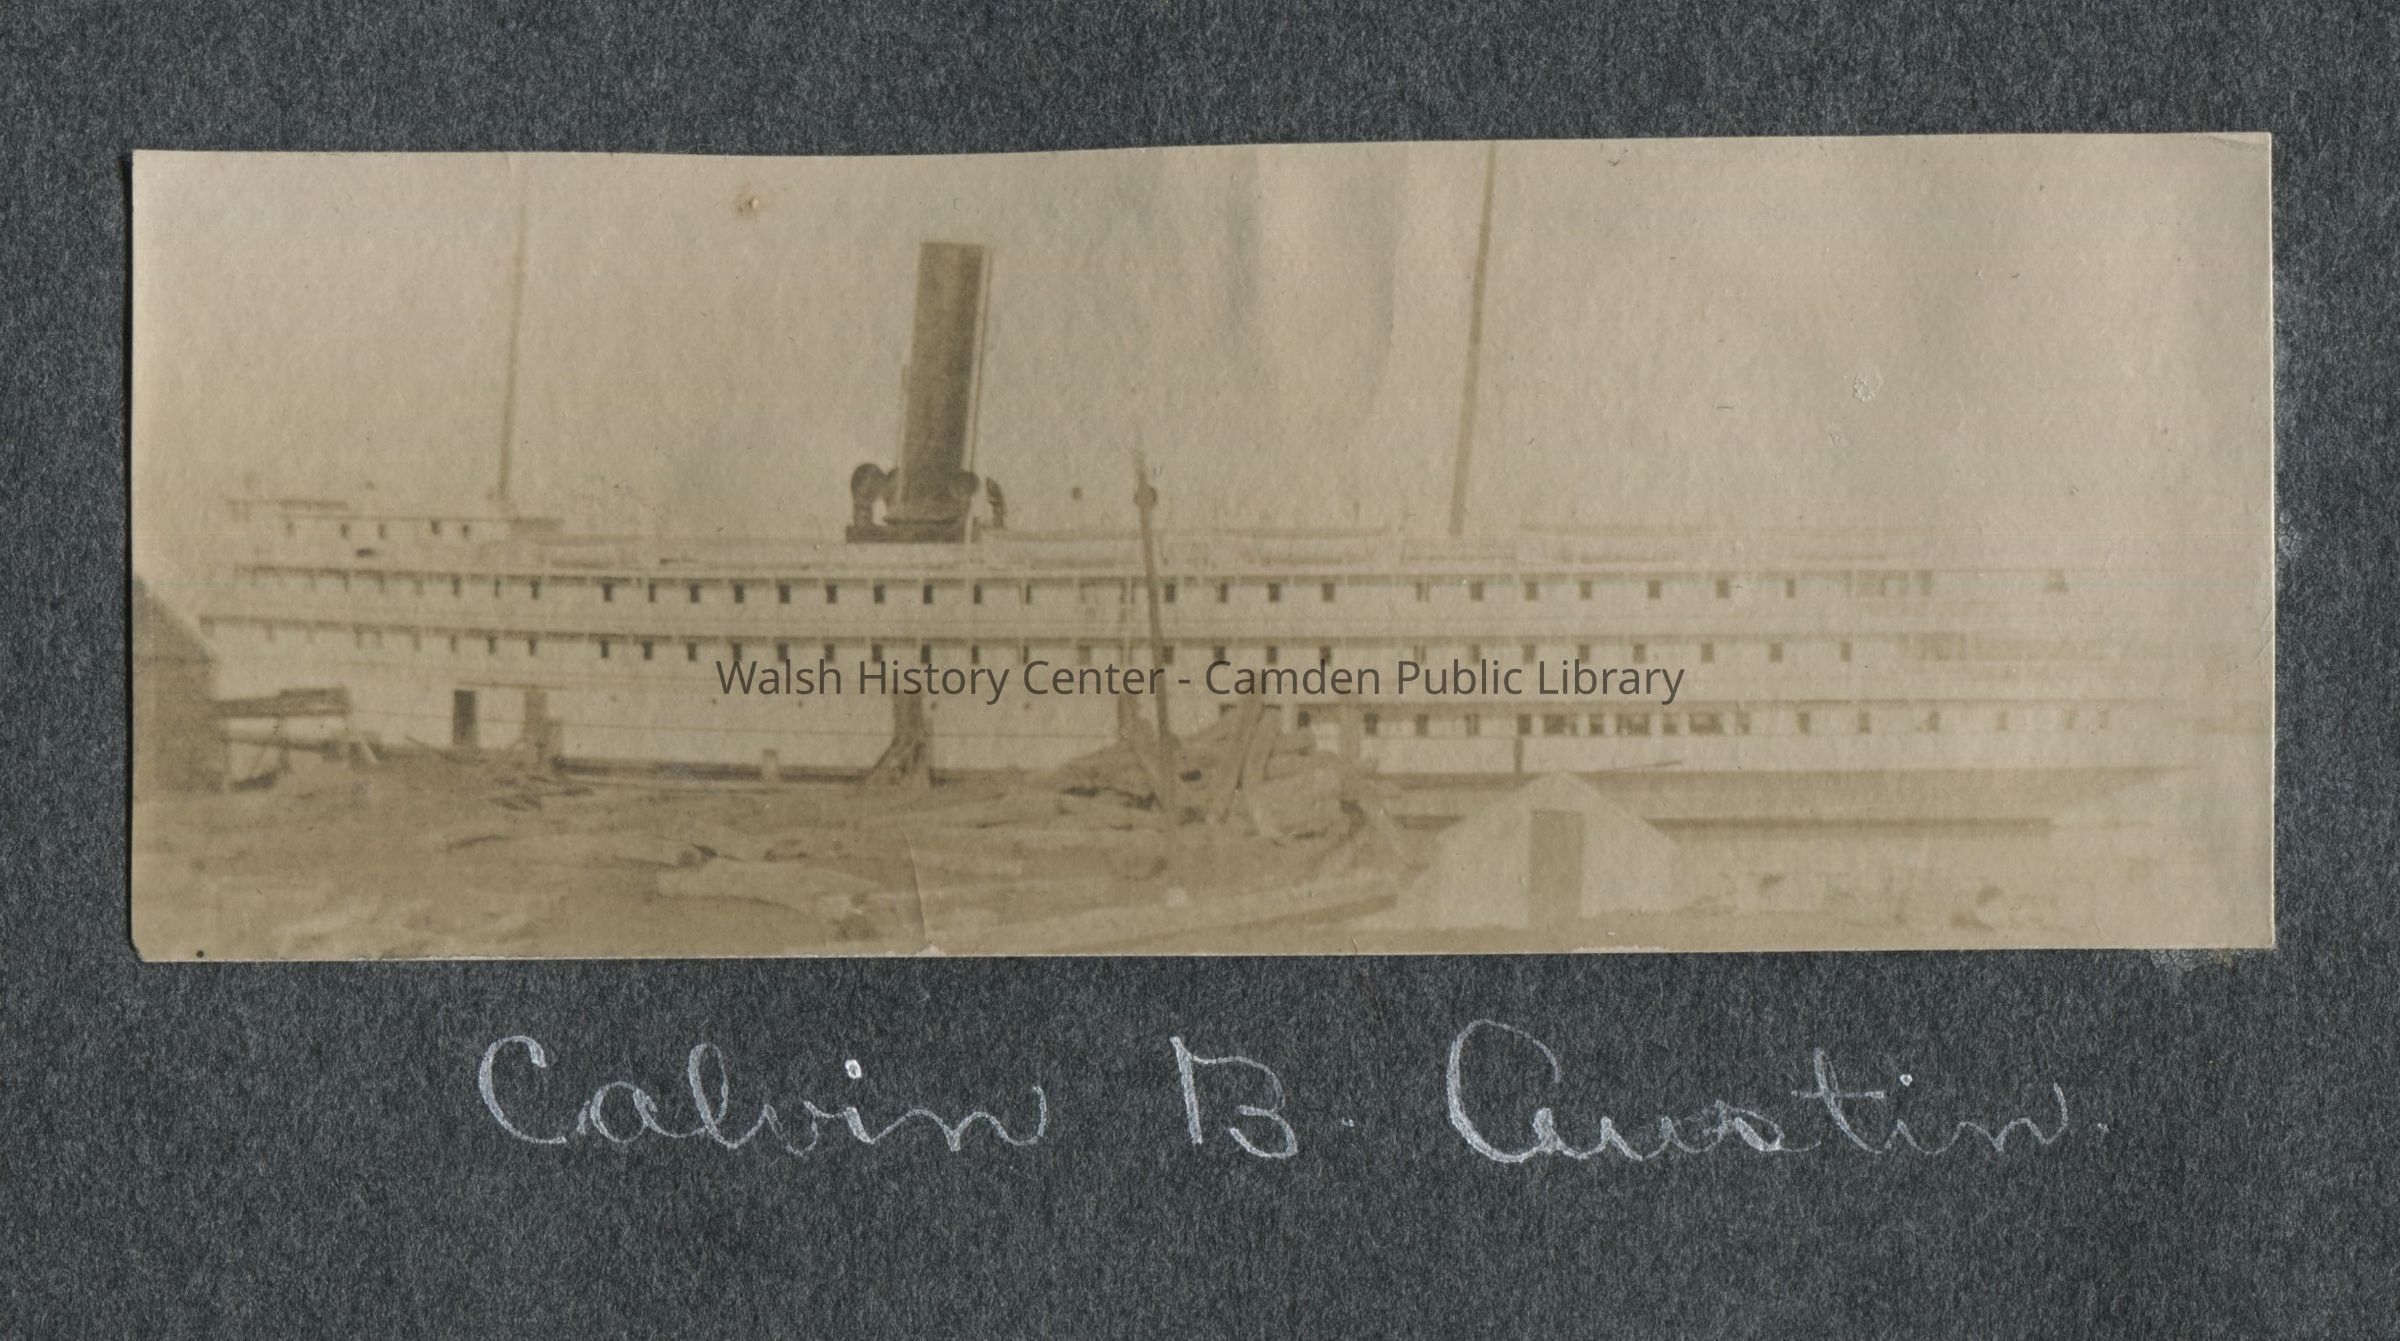 Walsh History Center - Camden Public Library
Calvin B. Austin.